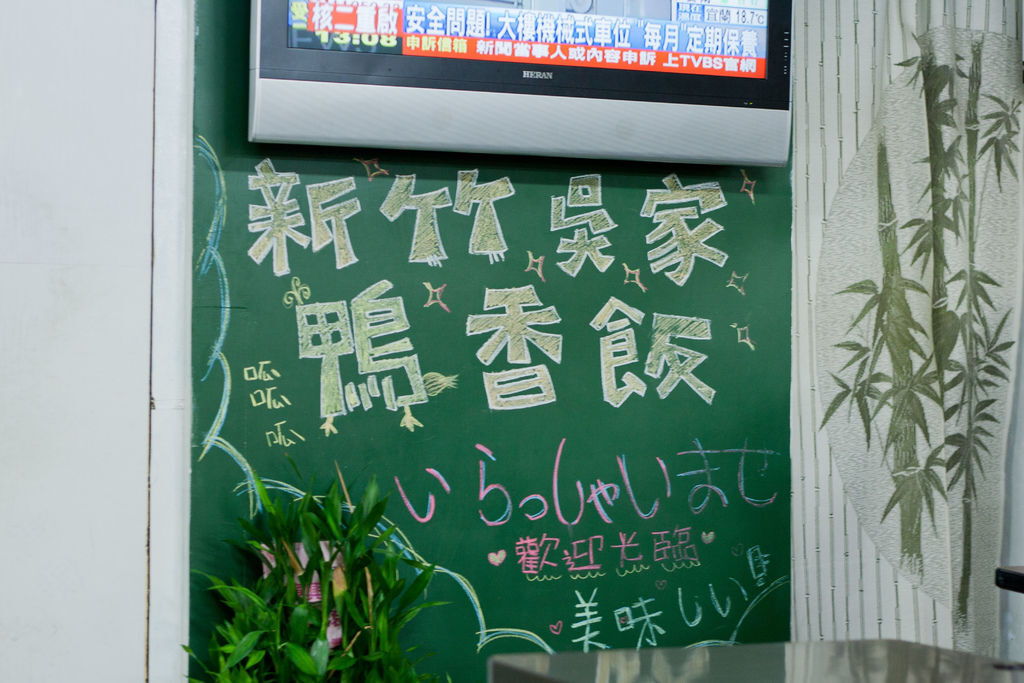 核二重啟 安全問題! 大樓機械式車位 "每月"定期保養
宜蘭 18.7℃
13:08 申訴信箱 新聞當事人或內容申訴 上TVBS官網
HERAN
新竹吳家
鴨香飯
呱
呱
呱
いらっしゃいませ
歡迎光臨
美味しい